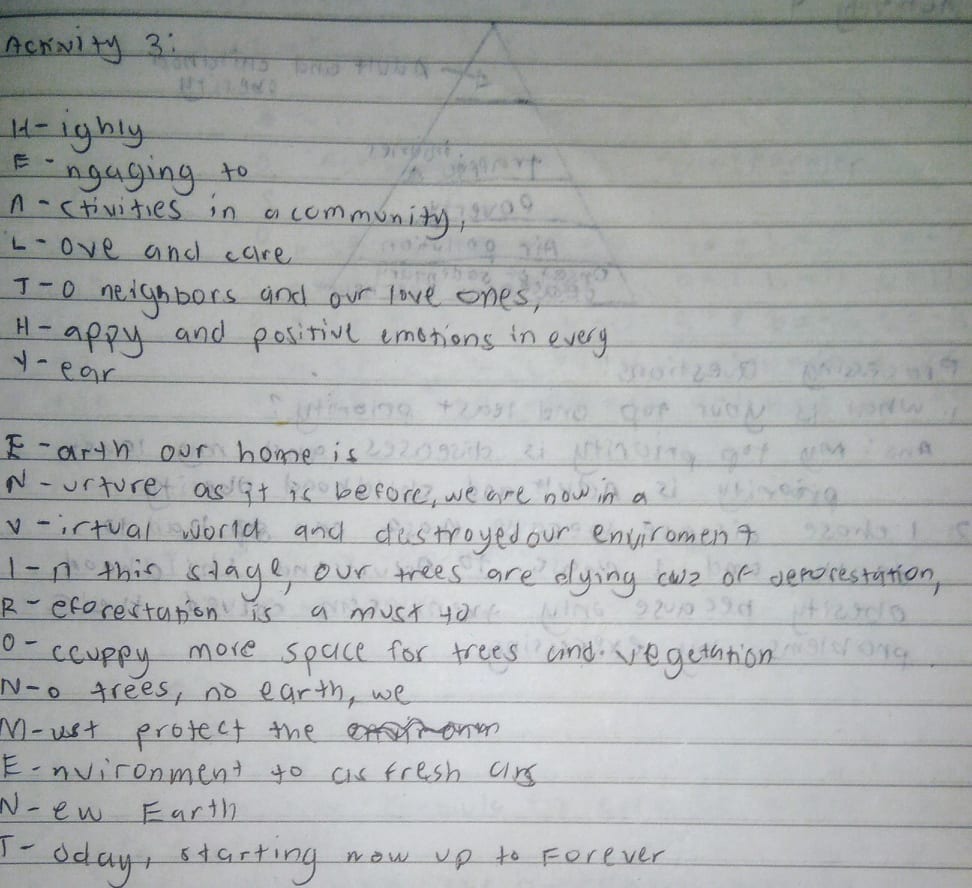 Activity 3:
H- ighly
E- ngaging to
A- ctivities in a community,
L- ove and care
T- o neighbors and our love ones,
H- appy and positive emotions in every
Y- ear
E- arth our home is
N- urture as it is before, we are now in a
V- irtual world and destroyed our enviroment
I- n this stage, our trees are dying cuz of deforestation,
R- eforestation is a must to
O- ccuppy more space for trees and vegetation
N- o trees, no earth, we
M- ust protect the
E- nvironment to as fresh as
N- ew Earth
T- oday, starting now up to Forever